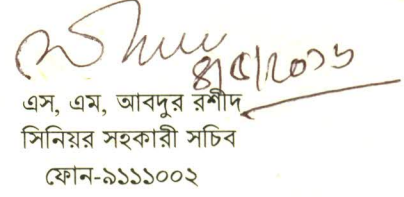 ৪/৫/২০১৬
এস, এম, আবদুর রশীদ
সিনিয়র সহকারী সচিব
ফোন-৯১১১০০২